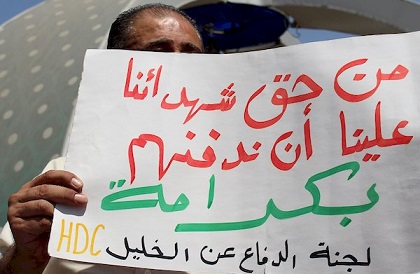 من حق شهدائنا
علينا أن ندفنهم
بكرامة
لجنة الدفاع عن الخليل HDC